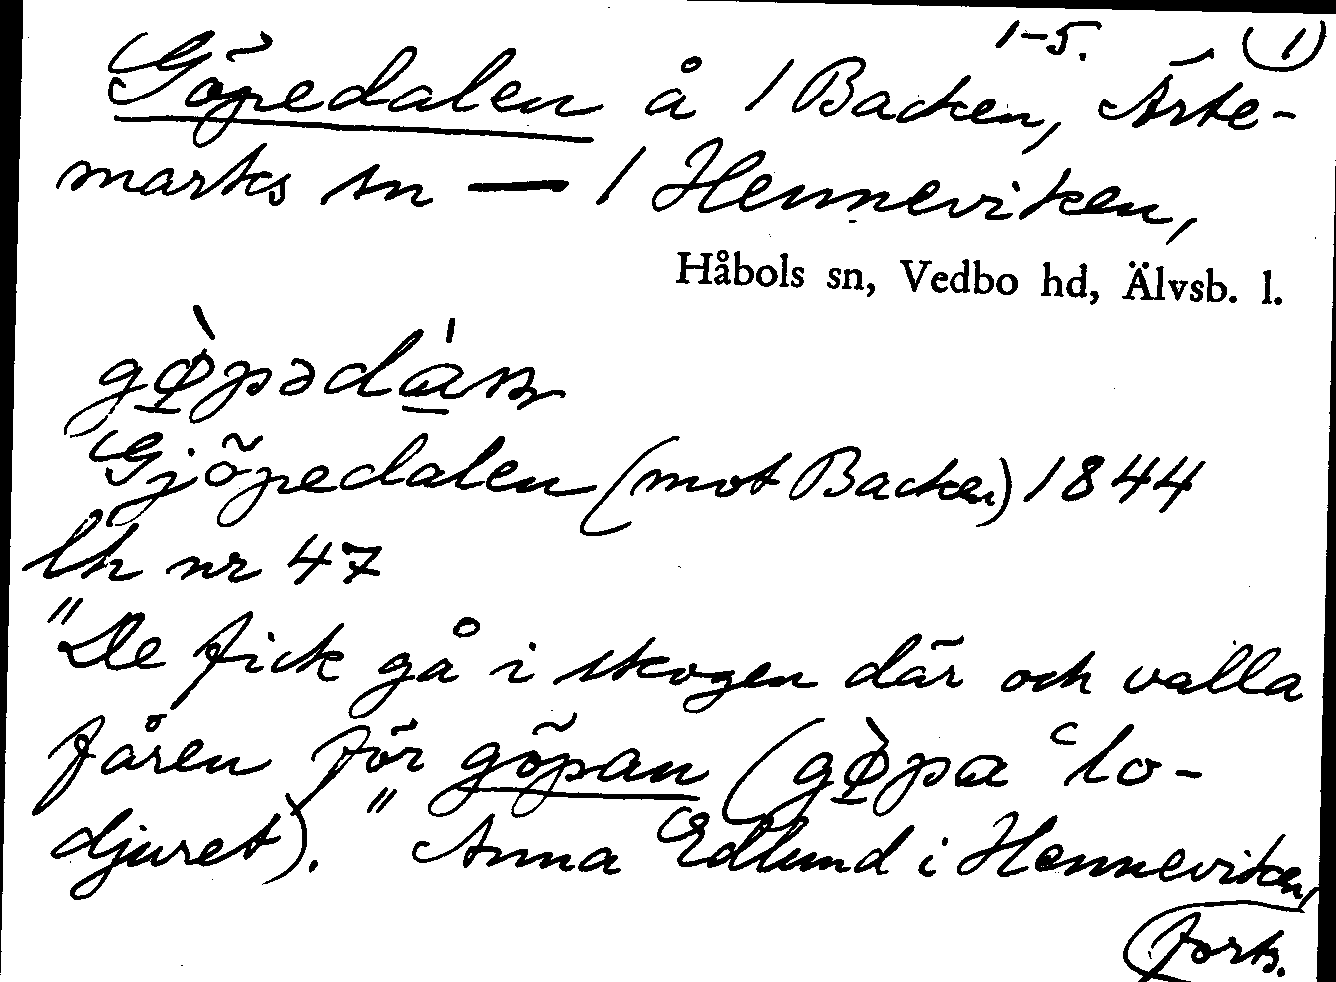 1-5. (1)
Göpedalen å 1 Backen, Ärte-
marks sn — 1 Henneviken,
Håbols sn, Vedbo hd, Älvsb. l.
Gjöpedalen (mot Backen) 1844
lh nr 47
"De fick gå i skogen där och valla
fåren för göpan (gø̀pa 'lo-
djuret)." Anna Edlund i Henneviken,
forts.